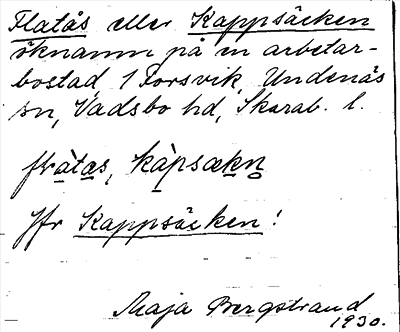 Flatås eller Kappsäcken
öknamn på en arbetar-
bostad, 1 Forsvik, Undenäs
sn, Vadsbo hd, Skarab. l.
kàpsækn
Jfr Kappsäcken!
Maja Bergstrand
1930.